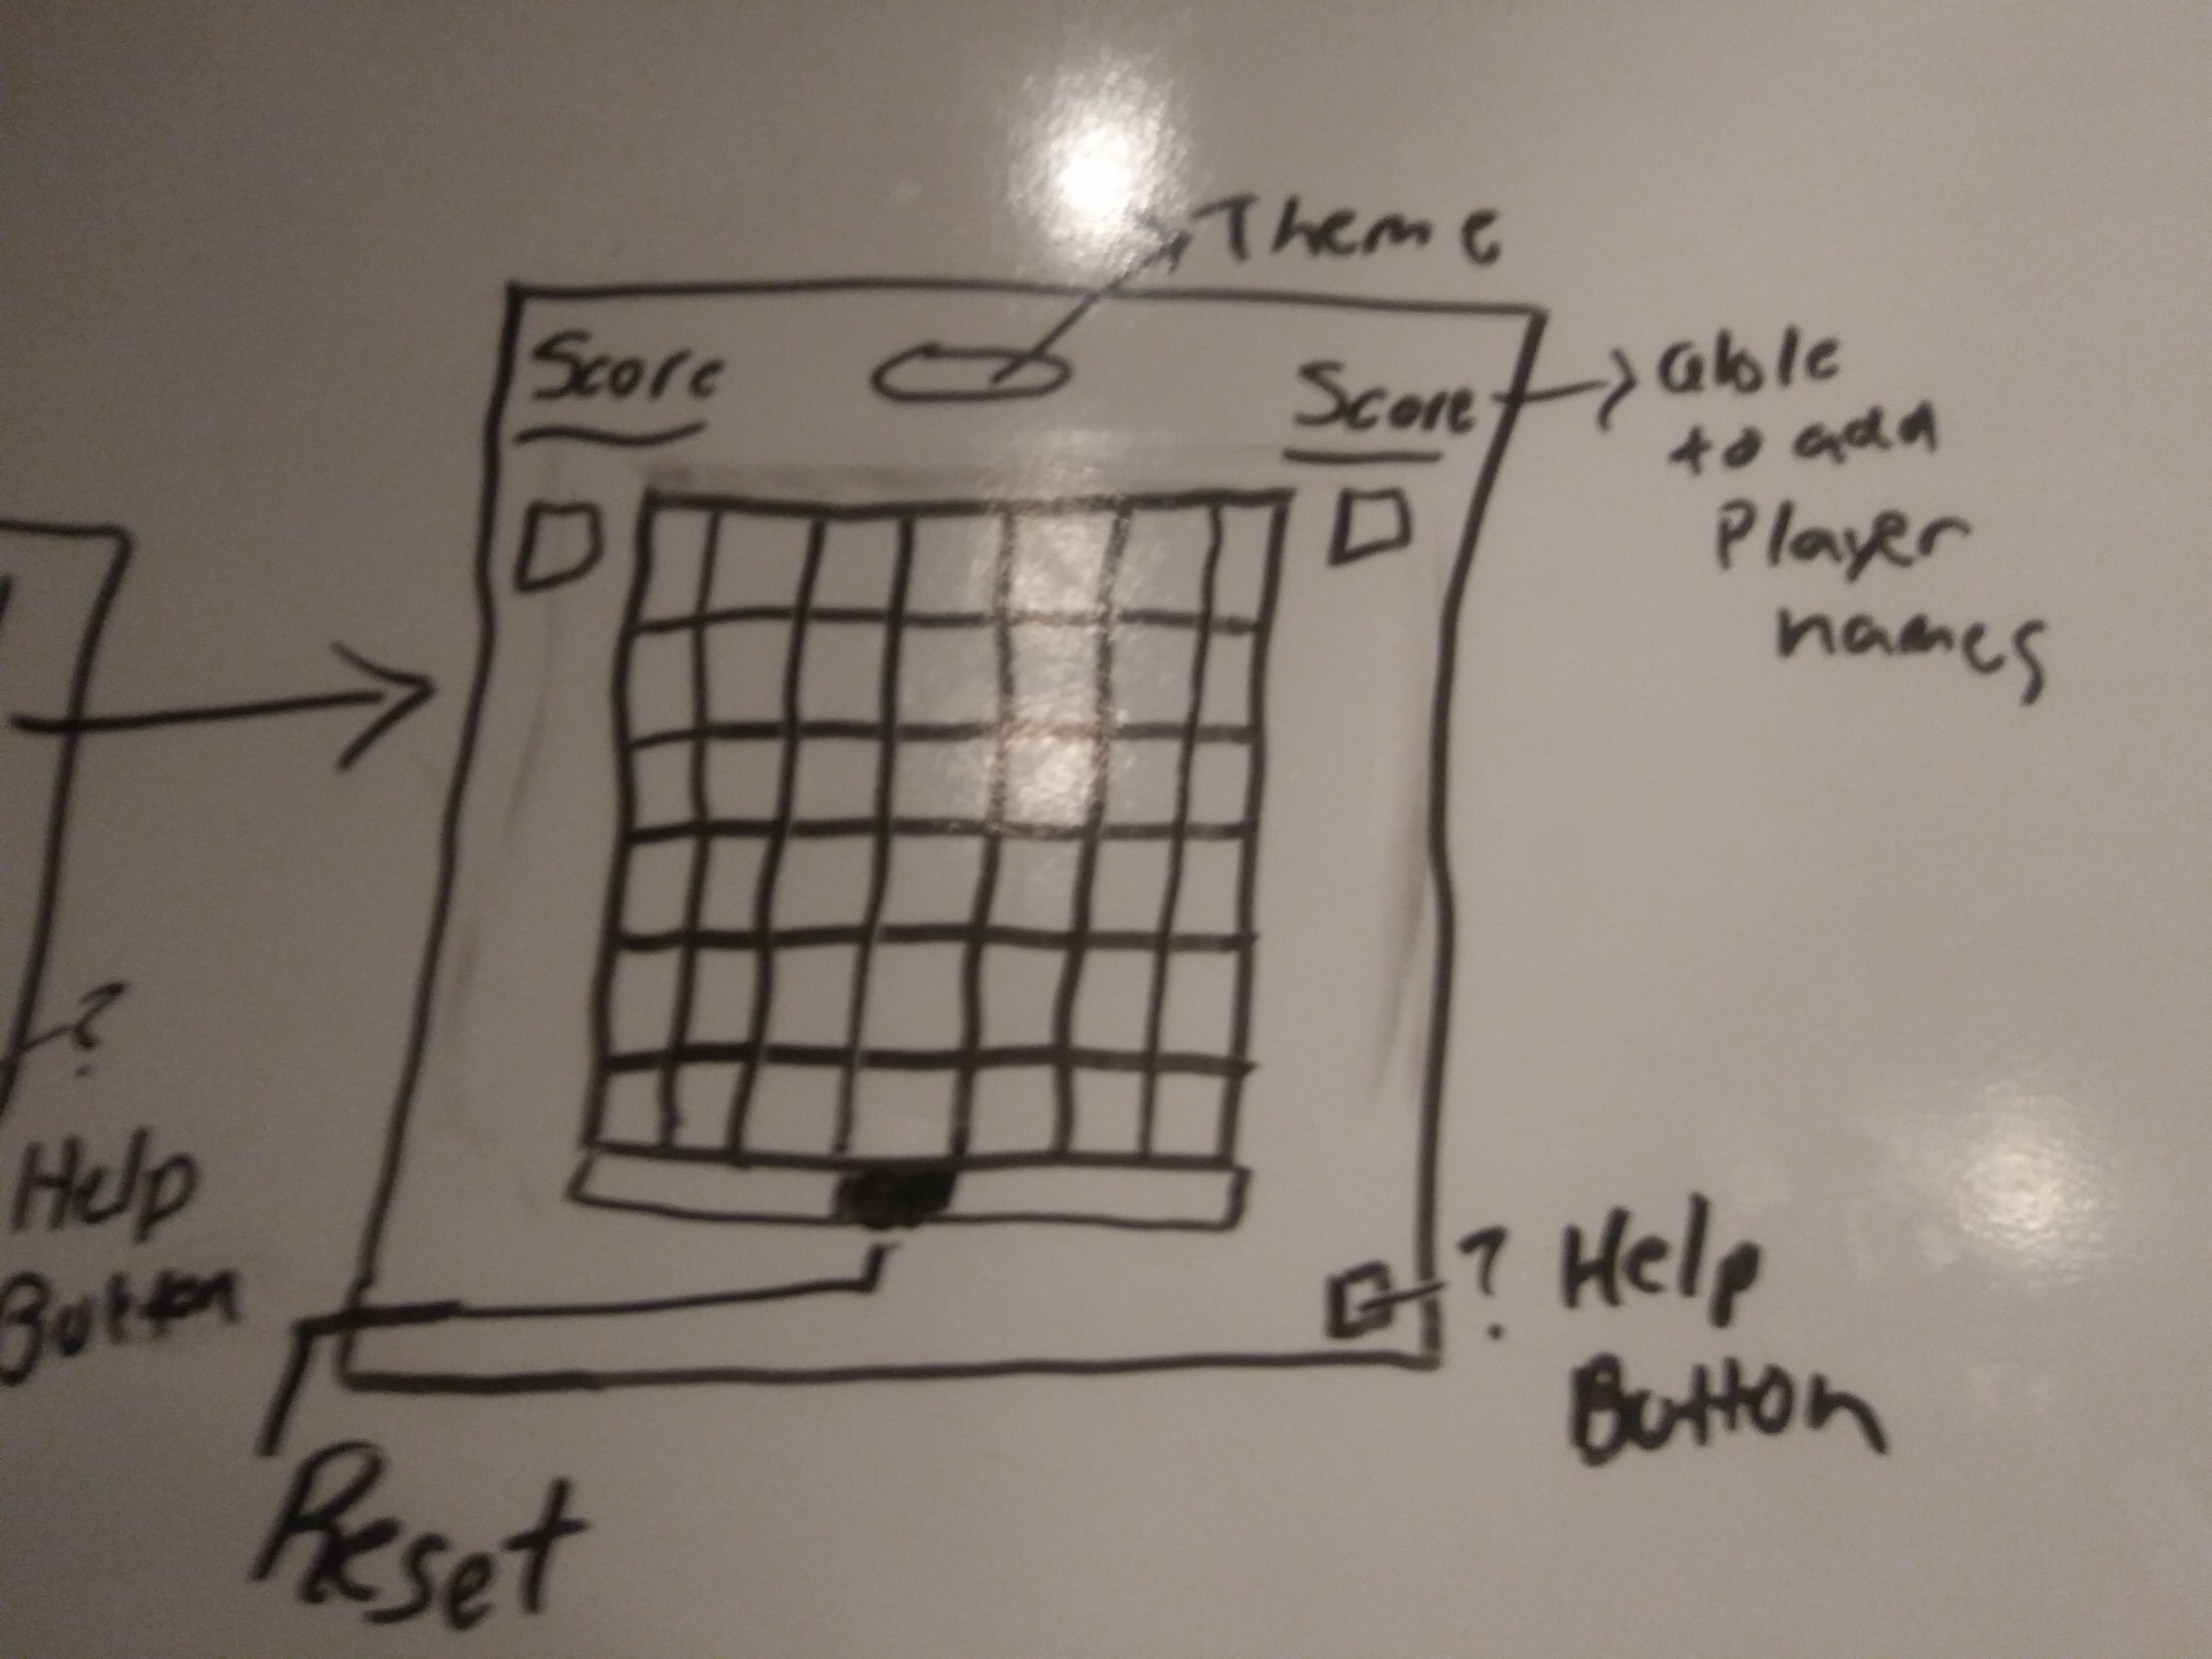 Theme
Score
Score
able
to add
Player
names
?
Help
Button
? Help
Button
Reset